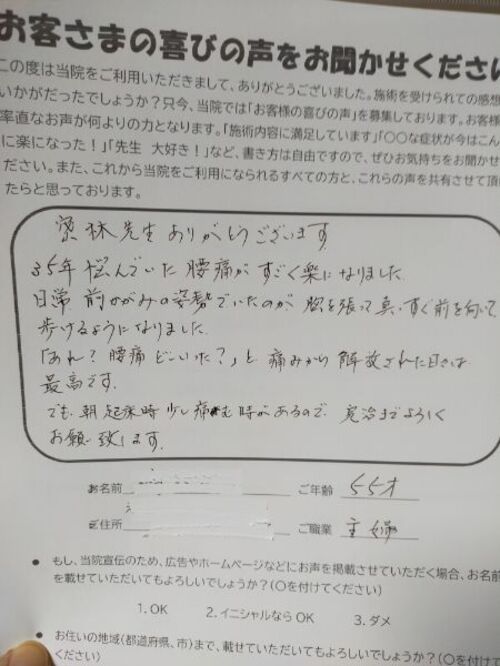 お客さまの喜びの声をお聞かせください
この度は当院をご利用いただきまして、ありがとうございました。施術を受けられての感想
いかがだったでしょうか?只今、当院では「お客様の喜びの声」を募集しております。お客様
率直なお声が何よりの力となります。「施術内容に満足しています」「〇〇な症状が今はこん
に楽になった!」「先生 大好き!」など、書き方は自由ですので、ぜひお気持ちをお聞かせ
ださい。また、これから当院をご利用になられるすべての方と、これらの声を共有させて頂
たらと思っております。
栗林先生ありがとうございます
35年悩んでいた腰痛がすごく楽になりました
日常 前かがみの姿勢でいたのが 胸を張って真っすぐ前を向いて
歩けるようになりました。
「あれ?腰痛どこいった?」と 痛みから解放された日々は
最高です。
でも、朝起床時少し痛む時があるので 完治までよろしく
お願い致します。
お名前 ご年齢 55才
ご住所 ご職業 主婦
● もし、当院宣伝のため、広告やホームページなどにお声を掲載させていただく場合、お名前
を載せていただいてもよろしいでしょうか?(〇を付けてください)
1. OK 2. イニシャルなら OK 3. ダメ
● お住いの地域(都道府県、市)まで、載せていただいてもよろしいでしょうか?(〇を付け
ください)